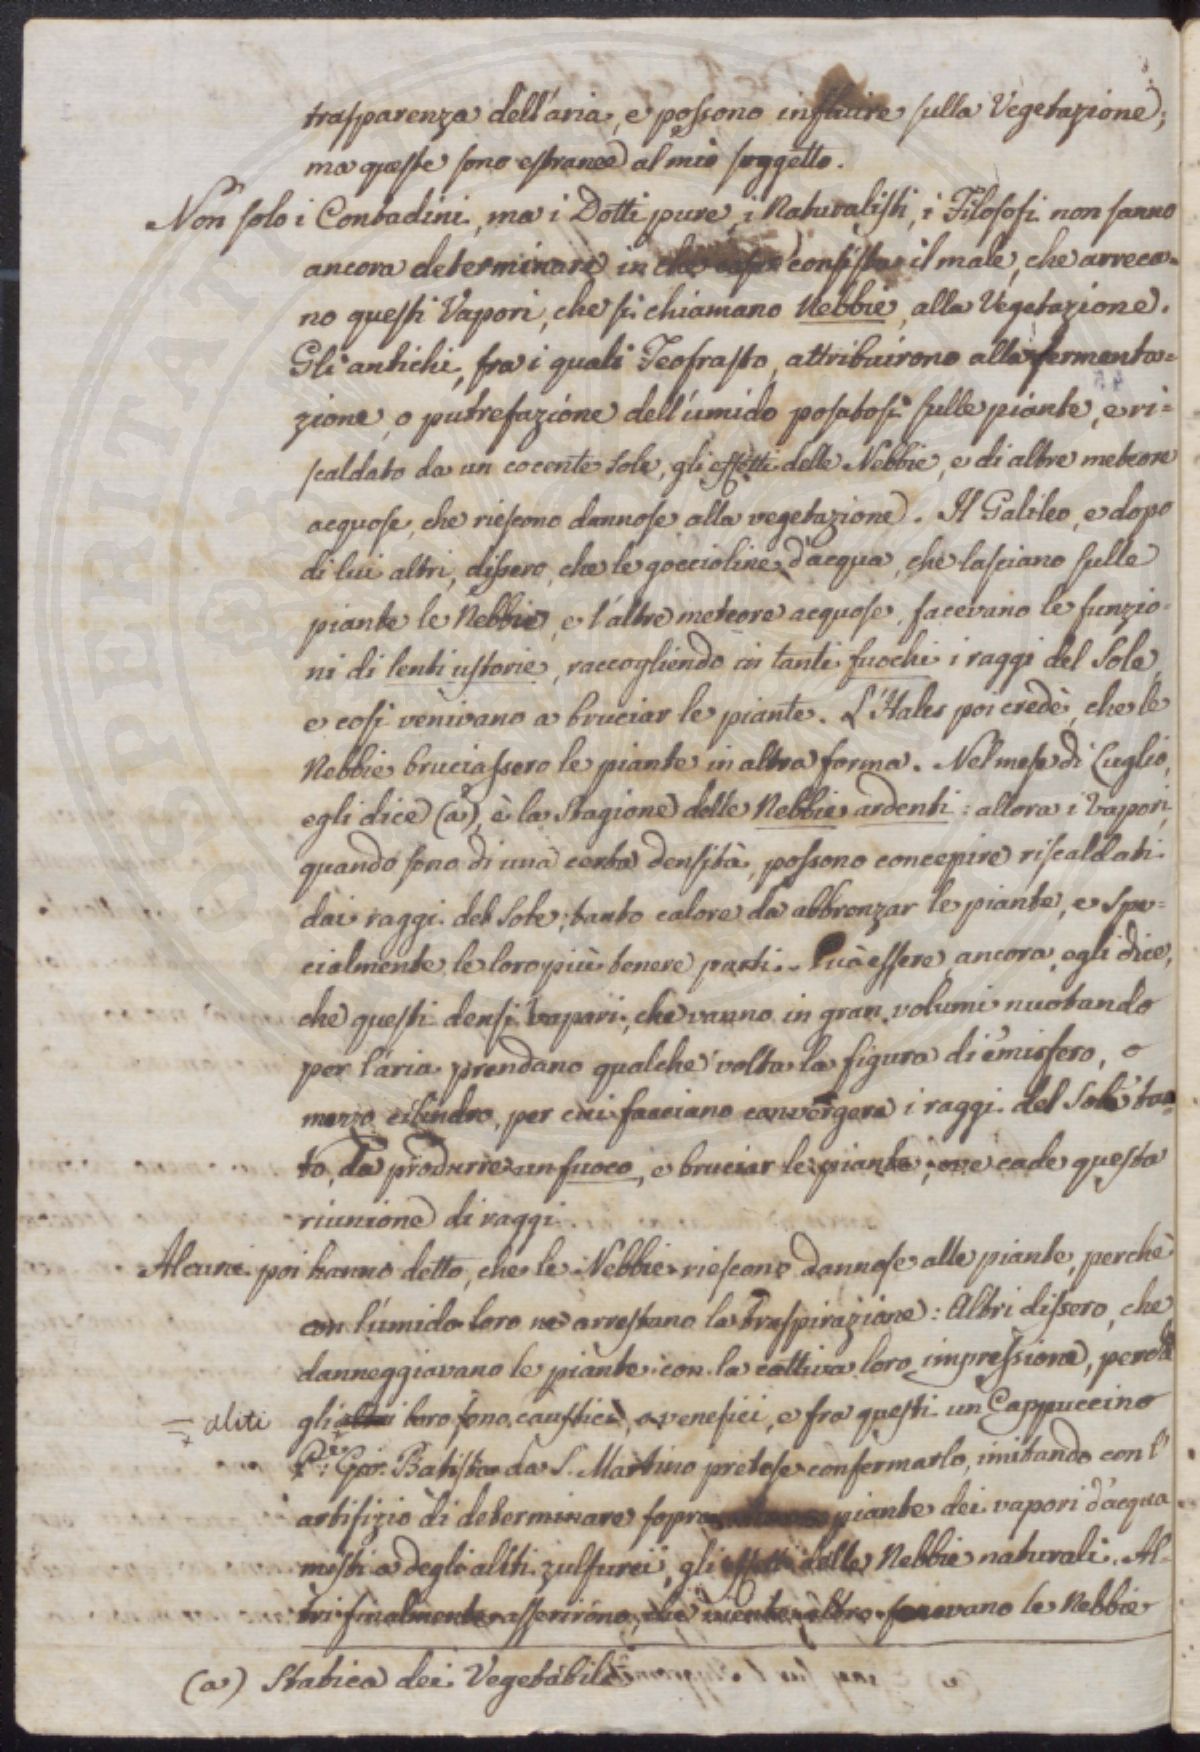 trasparenza dell'aria, e possono influire sulla Vegetazione;
ma queste sono estranee al mio soggetto.
Non solo i Contadini, ma i Dotti pure, i Naturalisti, i Filosofi non sanno
ancora determinare in che consista il male, che arreca=
no questi Vapori, che si chiamano Nebbie, alla Vegetazione.
Gli antichi, fra i quali Teofrasto, attribuirono alla fermenta=
zione, o putrefazione dell'umido posatosi sulle piante, e ri=
scaldato da un cocente Sole, gli effetti delle Nebbie, e di altre meteore
acquose, che riescono dannose alla vegetazione. Il Galileo, e dopo
di lui altri, dissero, che le goccioline d'acqua, che lasciano sulle
piante le Nebbie, e l'altre meteore acquose, facevano le funzio=
ni di lenti ustorie, raccogliendo in tanti fuochi i raggi del Sole,
e così venivano a bruciar le piante. L'Hales poi credè, che le
Nebbie bruciassero le piante in altra forma. Nel mese di Luglio,
egli dice (a), è la Stagione delle Nebbie ardenti: allora i Vapori,
quando sono di una certa densità, possono concepire riscaldati
dai raggi del Sole, tanto calore da abbronzar le piante, e spe=
cialmente le loro più tenere parti. Può essere ancora, egli dice,
che questi densi vapori, che vanno in gran volumi nuotando
per l'aria prendano qualche volta la figura di emisfero, o
mezzo cilindro, per cui facciano convergere i raggi del Sole tan=
to, da produrre un fuoco, e bruciar le piante, ove cade questa
riunione di raggi.
Alcuni poi hanno detto, che le Nebbie riescono dannose alle piante, perchè
con l'umido loro ne arrestano la traspirazione: Altri dissero, che
danneggiavano le piante con la cattiva loro impressione, perchè
= aliti gli altri loro sono caustici, o venefici, e fra questi un Cappuccino
P: Gio: Batista da S. Martino pretese confermarlo, imitando con l'
artifizio di determinare sopra piante dei vapori d'acqua
misti a degli aliti zulfurei, gli effetti delle Nebbie naturali. Al=
tri finalmente asserirono, che niente altro facevano le Nebbie
(a) Statica dei Vegetabili